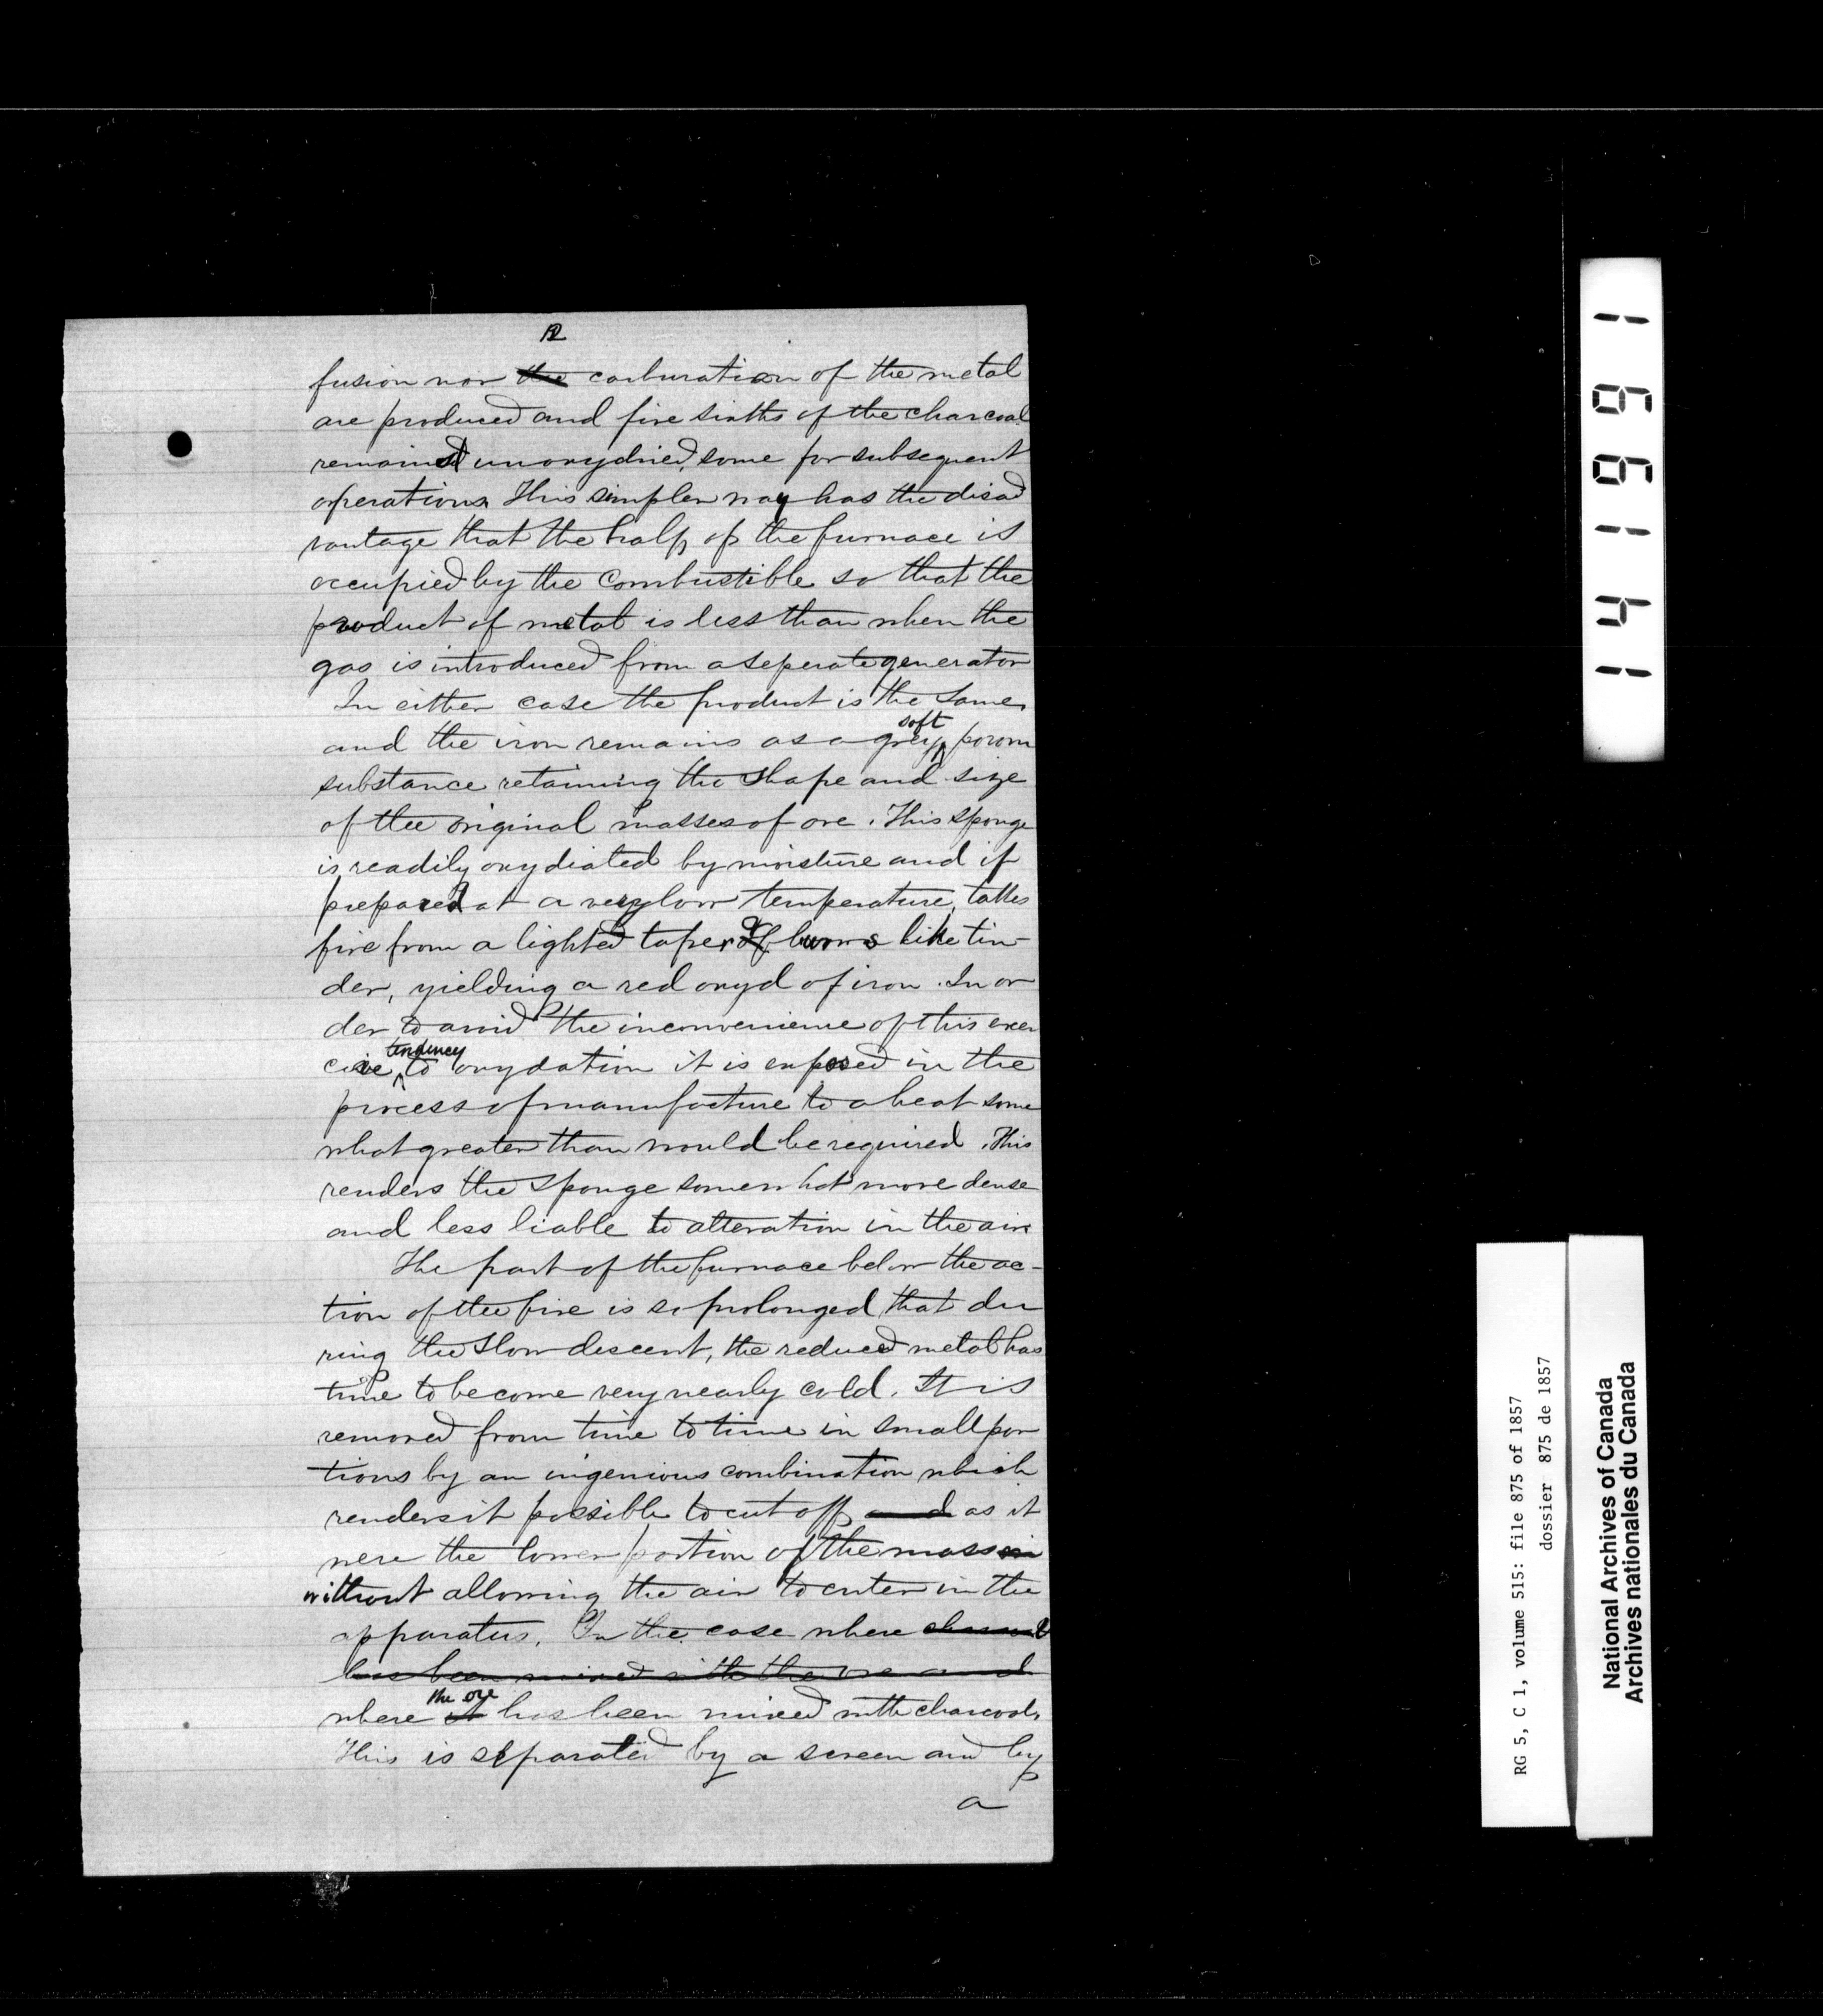 12
fusion nor the carburation of the metal
are produced and five sixths of the charcoal
remained unoxydized, some for subsequent
operations. This simpler way has the disad
vantage that the half of the furnace is
occupied by the combustible so that the
product of metal is less than when the
gas is introduced from a seperate generator
In either case the product is the same,
soft
and the iron remains as a grey porous
substance retaining the shape and size
of the original masses of ore. This sponge
is readily oxydiated by moisture and if
prepared at a very low temperature, takes
fire from a lighted taper & burns like tin-
der, yielding a red oxyd of iron. In or
der to avoid the inconvenience of this exces
tendency
cive to oxydation it is exposed in the
process of manufacture to a heat some
what greater than would be required. This
renders the sponge somewhat more dense
and less liable to alteration in the air.
The part of the furnace below the ac-
tion of the fire is so prolonged that du
ring the slow descent, the reduced metal has
time to become very nearly cold. It is
removed from time to time in small por
tions by an ingenious combination which
renders it possible to cut off and as it
were the lower portion of the mass
without allowing the air to enter in the
apparatus. In the case where charcoal
has been mixed with the ore and
the ore
where it has been mixed with charcoal,
This is separated by a screen and by
a
141661
RG 5, C 1, volume 515: file 875 of 1857
dossier 875 de 1857
National Archives of Canada
Archives nationales du Canada